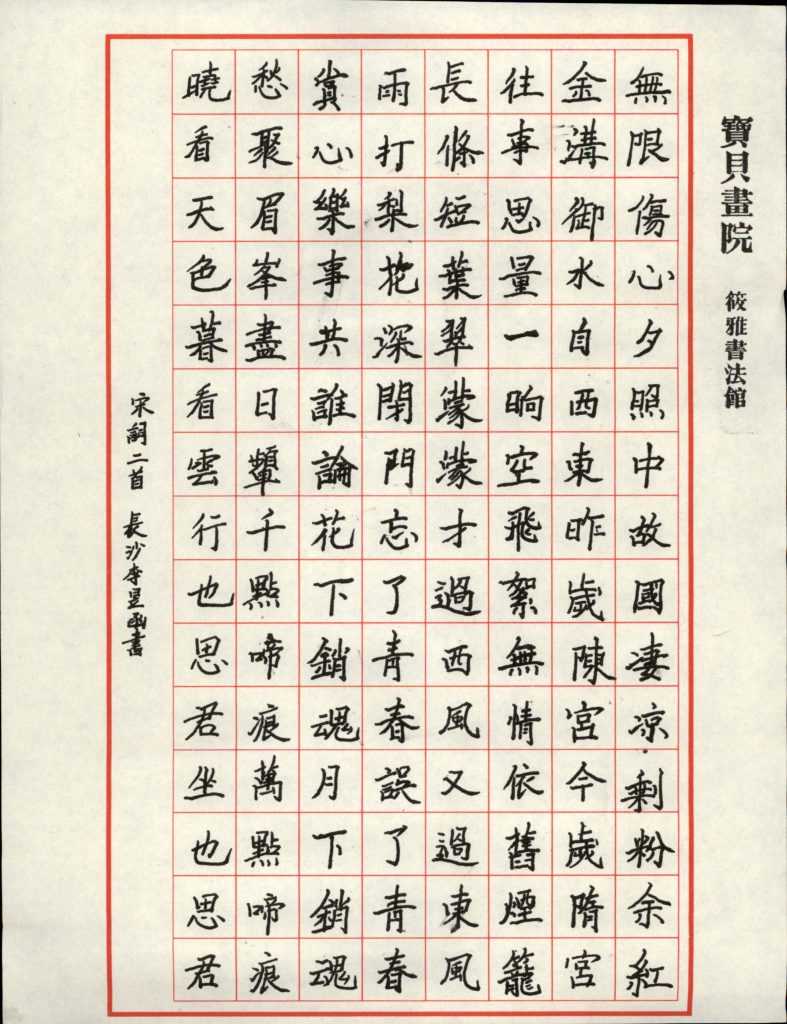 寶貝畫院 筱雅書法館
無限傷心夕照中故國凄凉剩粉余紅
金溝御水自西東昨歲陳宮今歲隋宮
往事思量一晌空飛絮無情依舊煙籠
長條短葉翠濛濛才過西風又過東風
雨打梨花深閉門忘了青春誤了青春
賞心樂事共誰論花下銷魂月下銷魂
愁聚眉峯盡日顰千點啼痕萬點啼痕
曉看天色暮看雲行也思君坐也思君
宋詞二首 長沙李昱函書